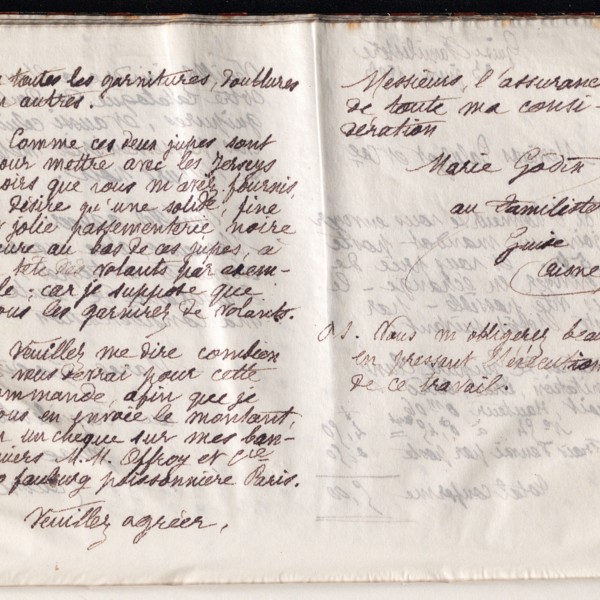 toutes les garnitures, doublures
autres.
Comme ces deux jupes sont
pour mettre avec les Jerseys
noirs que vous m'avez fournis,
désire qu'une solide, fine
jolie passementerie noire
au bas de ces jupes, à
tête des volants par exem-
ple; car je suppose que
vous les garnirez de volants.
Veuillez me dire combien
vous devrai pour cette
commande, afin que je
vous en envoie le montant,
un chèque sur mes ban-
quiers M.M. Offroy et Cie
fauburg poissonnière Paris.
Veuillez agréer,
Messieurs, l'assurance
de toute ma consi-
dération
Marie Godin
au Familistè
Guise
Aisne
P.S. Vous m'obligerez beau
en pressant l'exécution
de ce travail.